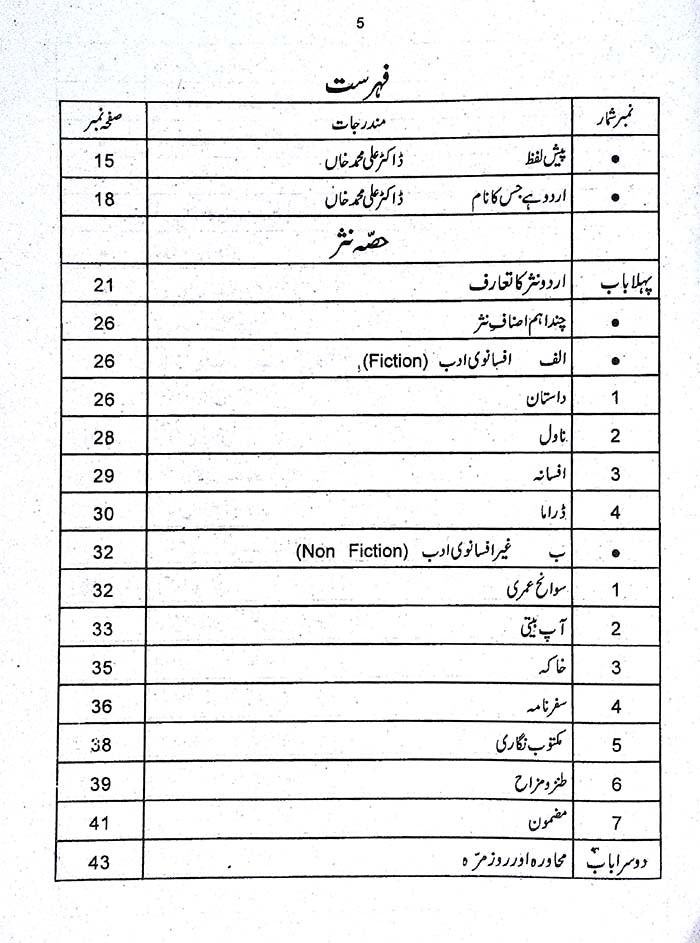 5
فہرست
نمبر شمار مندرجات صفحہ نمبر
● پیش لفظ ڈاکٹر علی محمد خاں 15
● اردو ہے جس کا نام ڈاکٹر علی محمد خاں 18
حصّہ نثر
پہلا باب اردو نثر کا تعارف 21
● چند اہم اصنافِ نثر 26
● الف افسانوی ادب (Fiction) 26
1 داستان 26
2 ناول 28
3 افسانہ 29
4 ڈراما 30
● ب غیر افسانوی ادب (Non Fiction) 32
1 سوانح عمری 32
2 آپ بیتی 33
3 خاکہ 35
4 سفرنامہ 36
5 مکتوب نگاری 38
6 طنز و مزاح 39
7 مضمون 41
دوسرا باب محاورہ اور روزمرّہ 43